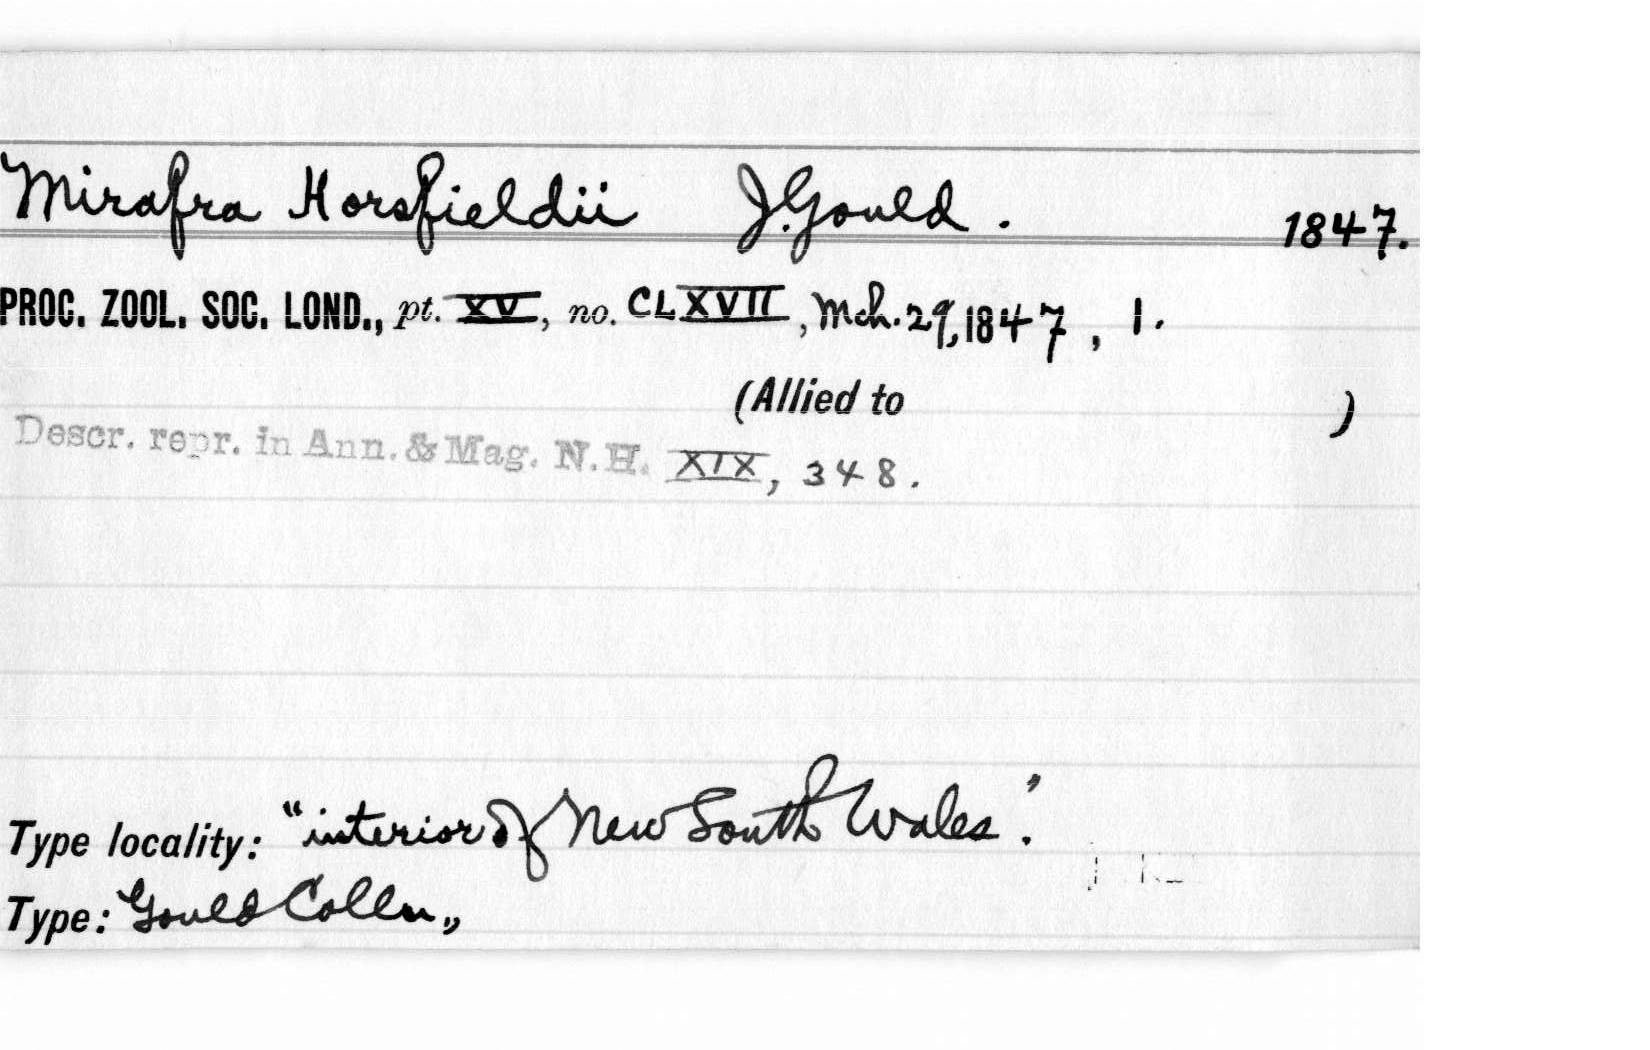 Mirafra Horsfieldii J. Gould. 1847.
PROC. ZOOL. SOC. LOND., pt. XV, no. CLXVII, Mch. 29, 1847, 1.
(Allied to )
Descr. repr. in Ann. & Mag. N.H. XIX, 348.
Type locality: "interior of New South Wales".
Type: Gould Colln.,